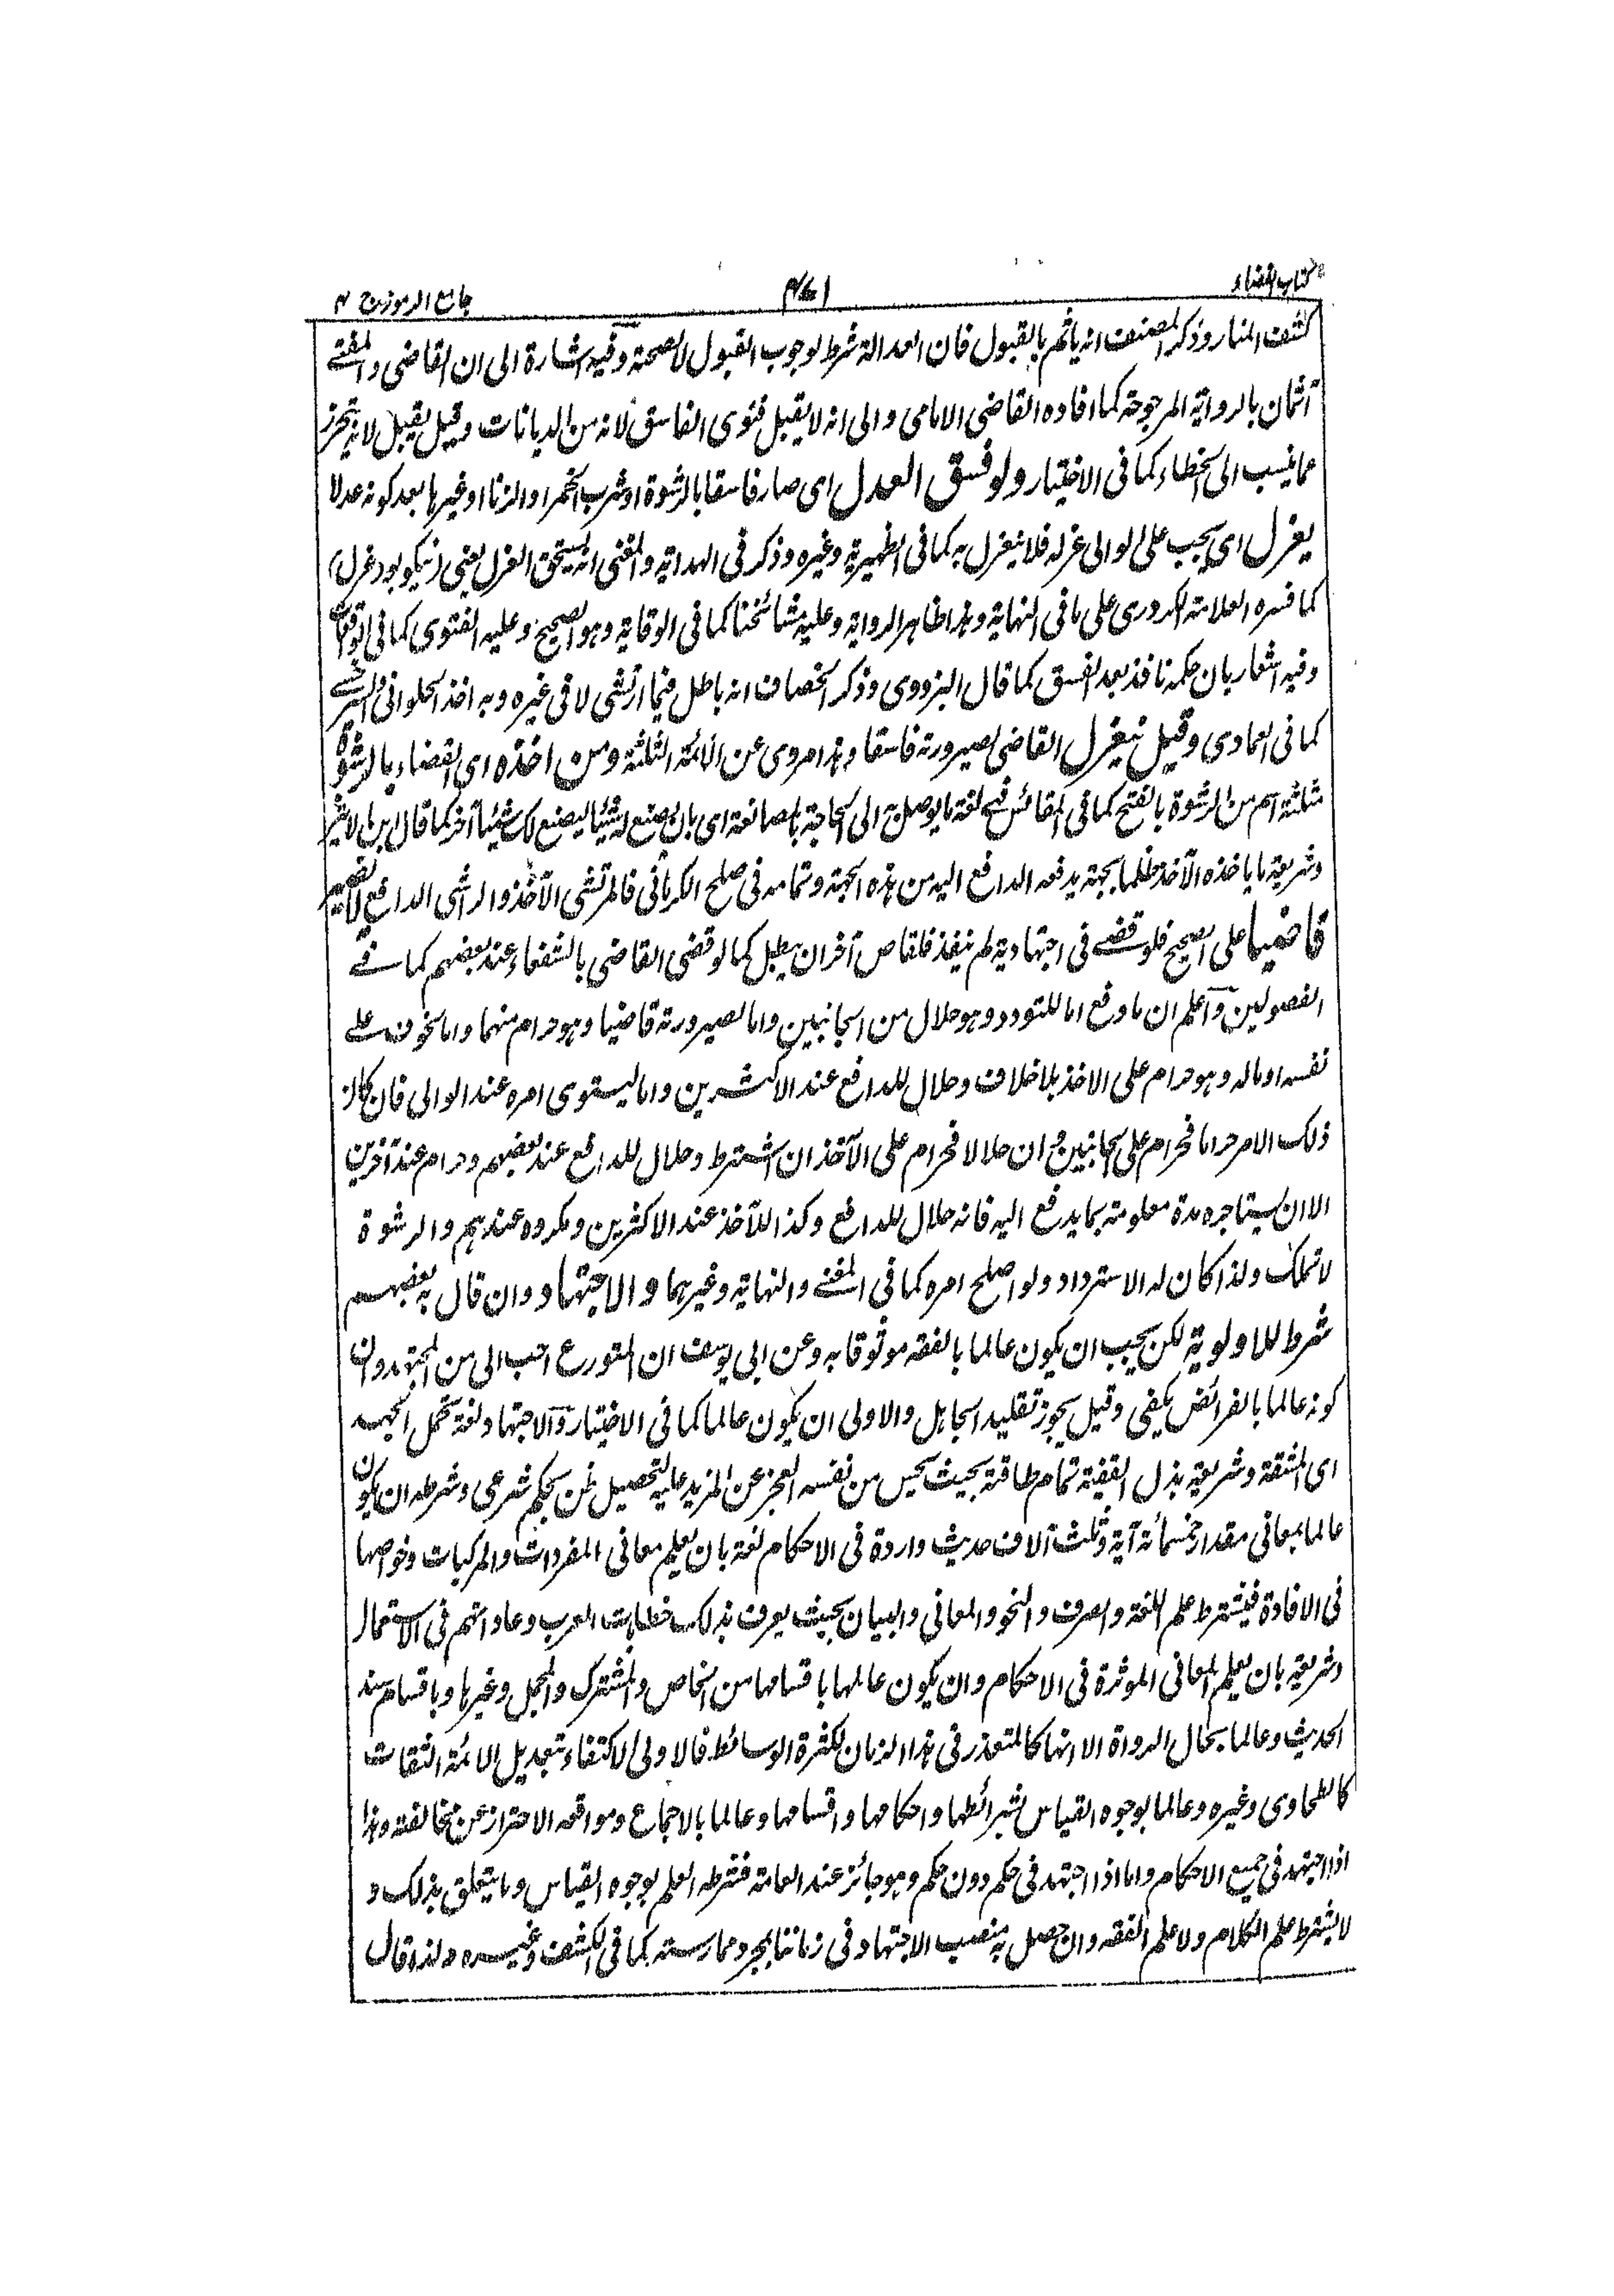 كتاب القضاء
٤٧١
جامع الرموز ج ٢
كشف المنار وذكر المصنف انه ياثم بالقبول فان العدالة شرط لوجوب القبول لا لصحته وفيه اشارة الى ان القاضى والمفتے
آثمان بالرواية المرجوحة كما افاده القاضى الامامى والى انه لا يقبل فتوى الفاسق لانه من الديانات وقيل يقبل لانه يتحرز
عما ينسب الى الخطاء كما فى الاختيار ولو فسق العدل اى صار فاسقا بالرشوة او شرب الخمر او الزنا او غيرها بعد كونه عدلا
يعزل اى يجب على الوالى عزله فلا ينعزل به كما فى الظهيرية وغيره وذكر فى الهداية والمغنى انه يستحق العزل يعنى (نيكو بود عزل)
كما فسره العلامة الكردرى على ما فى النهاية وهذا ظاهر الرواية وعليه مشائخنا كما فى الوقاية وهو الصحيح وعليه الفتوى كما فى الواقعات
وفيه اشعار بان حكمه نافذ بعد الفسق كما قال البزدوى وذكر الخصاف انه باطل فيما ارتشى لا فى غيره وبه اخذ الحلوانى والسرخسے
كما فى العمادى وقيل ينعزل القاضى لصيرورته فاسقا وهذا مروى عن الائمة الثلثة ومن اخذه اى القضاء بالرشوة
مثلثة اسم من الرشوة بالفتح كما فى المقائس فهى لغة ما يوصل به الى الحاجة بالمصانعة اى بان يصنع له شيئا ليصنع لك شيئا آخر كما قال ابن الاثير
وشريعة ما ياخذه الآخذ ظلما بجهة يدفعه الدافع اليه من هذه الجهة وتمامه فى صلح الكرمانى فالمرتشى الآخذ والراشى الدافع لا يصير
قاضيا على الصحيح فلو قضے فى اجتهادية لم ينفذ فلقاض آخر ان يبطل كما لو قضى القاضى بالشفعاء عند بعضهم كما فے
الفصولين واعلم ان ما دفع اما للتودد وهو حلال من الجانبين واما لصيرورته قاضيا وهو حرام منهما واما لخوف علے
نفسه او ماله وهو حرام على الاخذ بلا خلاف وحلال للدافع عند الاكثرين واما ليستوى امره عند الوالى فان كان
ذلك الامر حراما فحرام على الجانبين وان حلالا فحرام على الآخذ ان اشترط وحلال للدافع عند بعضهم وحرام عند آخرين
الا ان يستاجره مدة معلومة بما يدفع اليه فانه حلال للدافع وكذا للآخذ عند الاكثرين ومكروه عندهم والرشوة
لا تملك ولذا كان له الاسترداد ولو اصلح امره كما فى المغنے والنهاية وغيرهما والاجتهاد وان قال به بعضهم
شرط للاولوية لكن يجب ان يكون عالما بالفقه موثوقا به وعن ابى يوسف ان المتورع احب الى من المجتهد وان
كونه عالما بالفرائض يكفى وقيل يجوز تقليد الجاهل والاولى ان يكون عالما كما فى الاختيار والاجتهاد لغة تحمل الجهد
اى المشقة وشريعة بذل الفقيه تمام طاقته بحيث يحس من نفسه العجز عن المزيد عليه لتحصيل ظن بحكم شرعى وشرطه ان يكون
عالما بمعانى مقدار خمسمائة آية وثلث آلاف حديث واردة فى الاحكام لغة بان يعلم معانى المفردات والمركبات وخواصها
فى الافادة فيشترط علم اللغة والصرف والنحو والمعانى والبيان بحيث يعرف بذلك خطابات العرب وعاداتهم فى الاستعمال
وشريعة بان يعلم المعانى الموثرة فى الاحكام وان يكون عالما باقسامها من الخاص والمشترك والمجمل وغيرها وباقسام سند
الحديث وعالما بحال الرواة الا انها كالمتعذر فى هذا الزمان لكثرة الوسائط فالاولى الاكتفاء بتعديل الائمة الثقات
كالطحاوى وغيره وعالما بوجوه القياس بشرائطها واحكامها واقسامها وعالما بالاجماع ومواقعه الاحتراز عن مخالفته وهذا
اذا اجتهد فى جميع الاحكام واما اذا اجتهد فى حكم دون حكم وهو جائز عند العامة فشرطه العلم بوجوه القياس وما يتعلق بذلك و
لا يشترط علم الكلام ولا علم الفقه وان حصل به منصب الاجتهاد فى زماننا بمجرد ممارسته كما فى الكشف وغيره ولذا قال